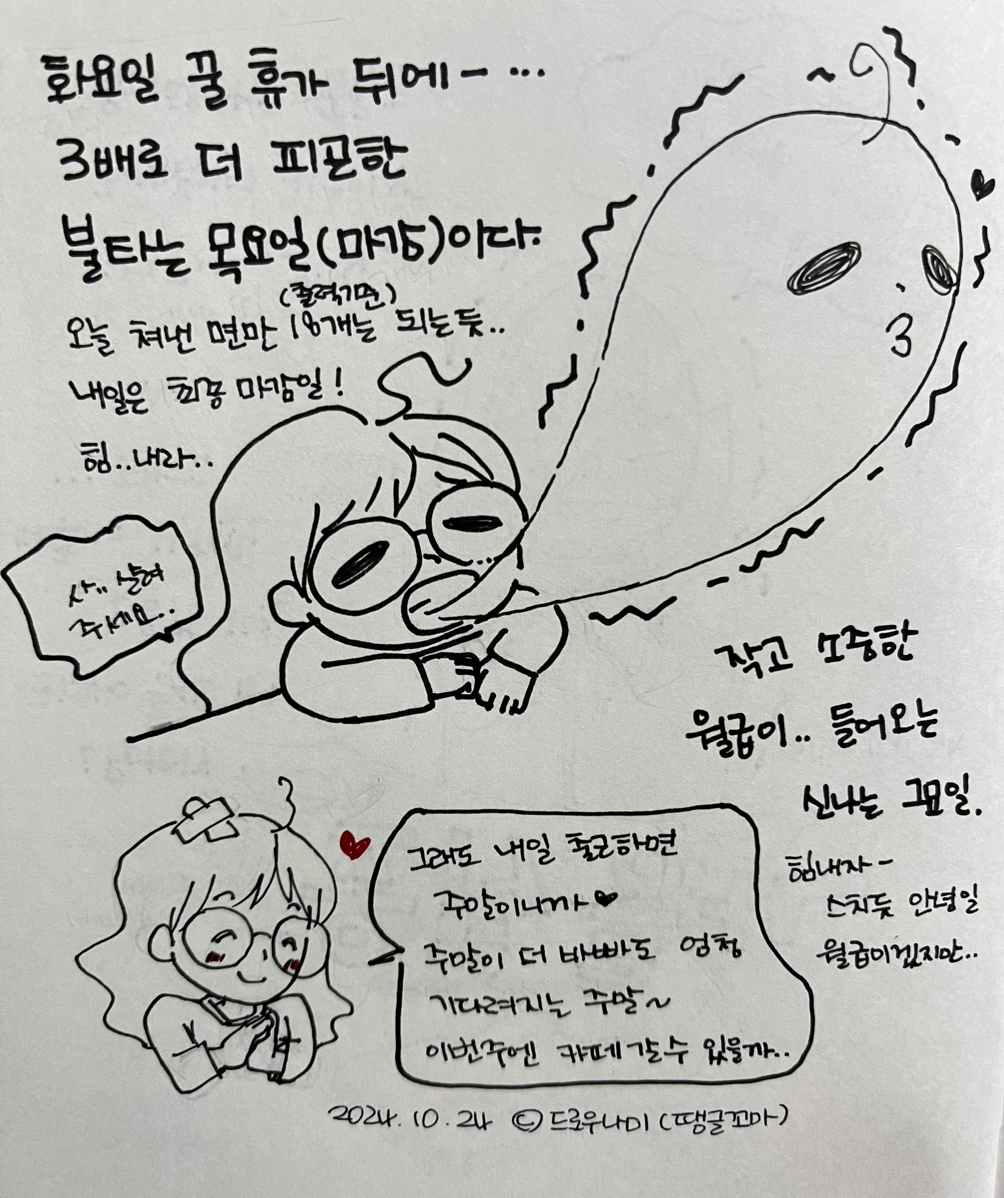 화요일 꿀 휴가 뒤에- ...
3배로 더 피곤한
불타는 목요일(마감)이다.
(출력기준)
오늘 쳐낸 면만 18개는 되는듯..
내일은 최종 마감일!
힘..내라..
사.. 살려
주세요...
작고 소중한
월급이.. 들어오는
신나는 금요일.
힘내자-
스치듯 안녕일
월급이겠지만..
그래도 내일 출근하면
주말이니까♥
주말이 더 바빠도 엄청
기다려지는 주말~
이번주엔 카페갈수 있을까..
2024.10.24 ©드로우나미(땡글꼬마)